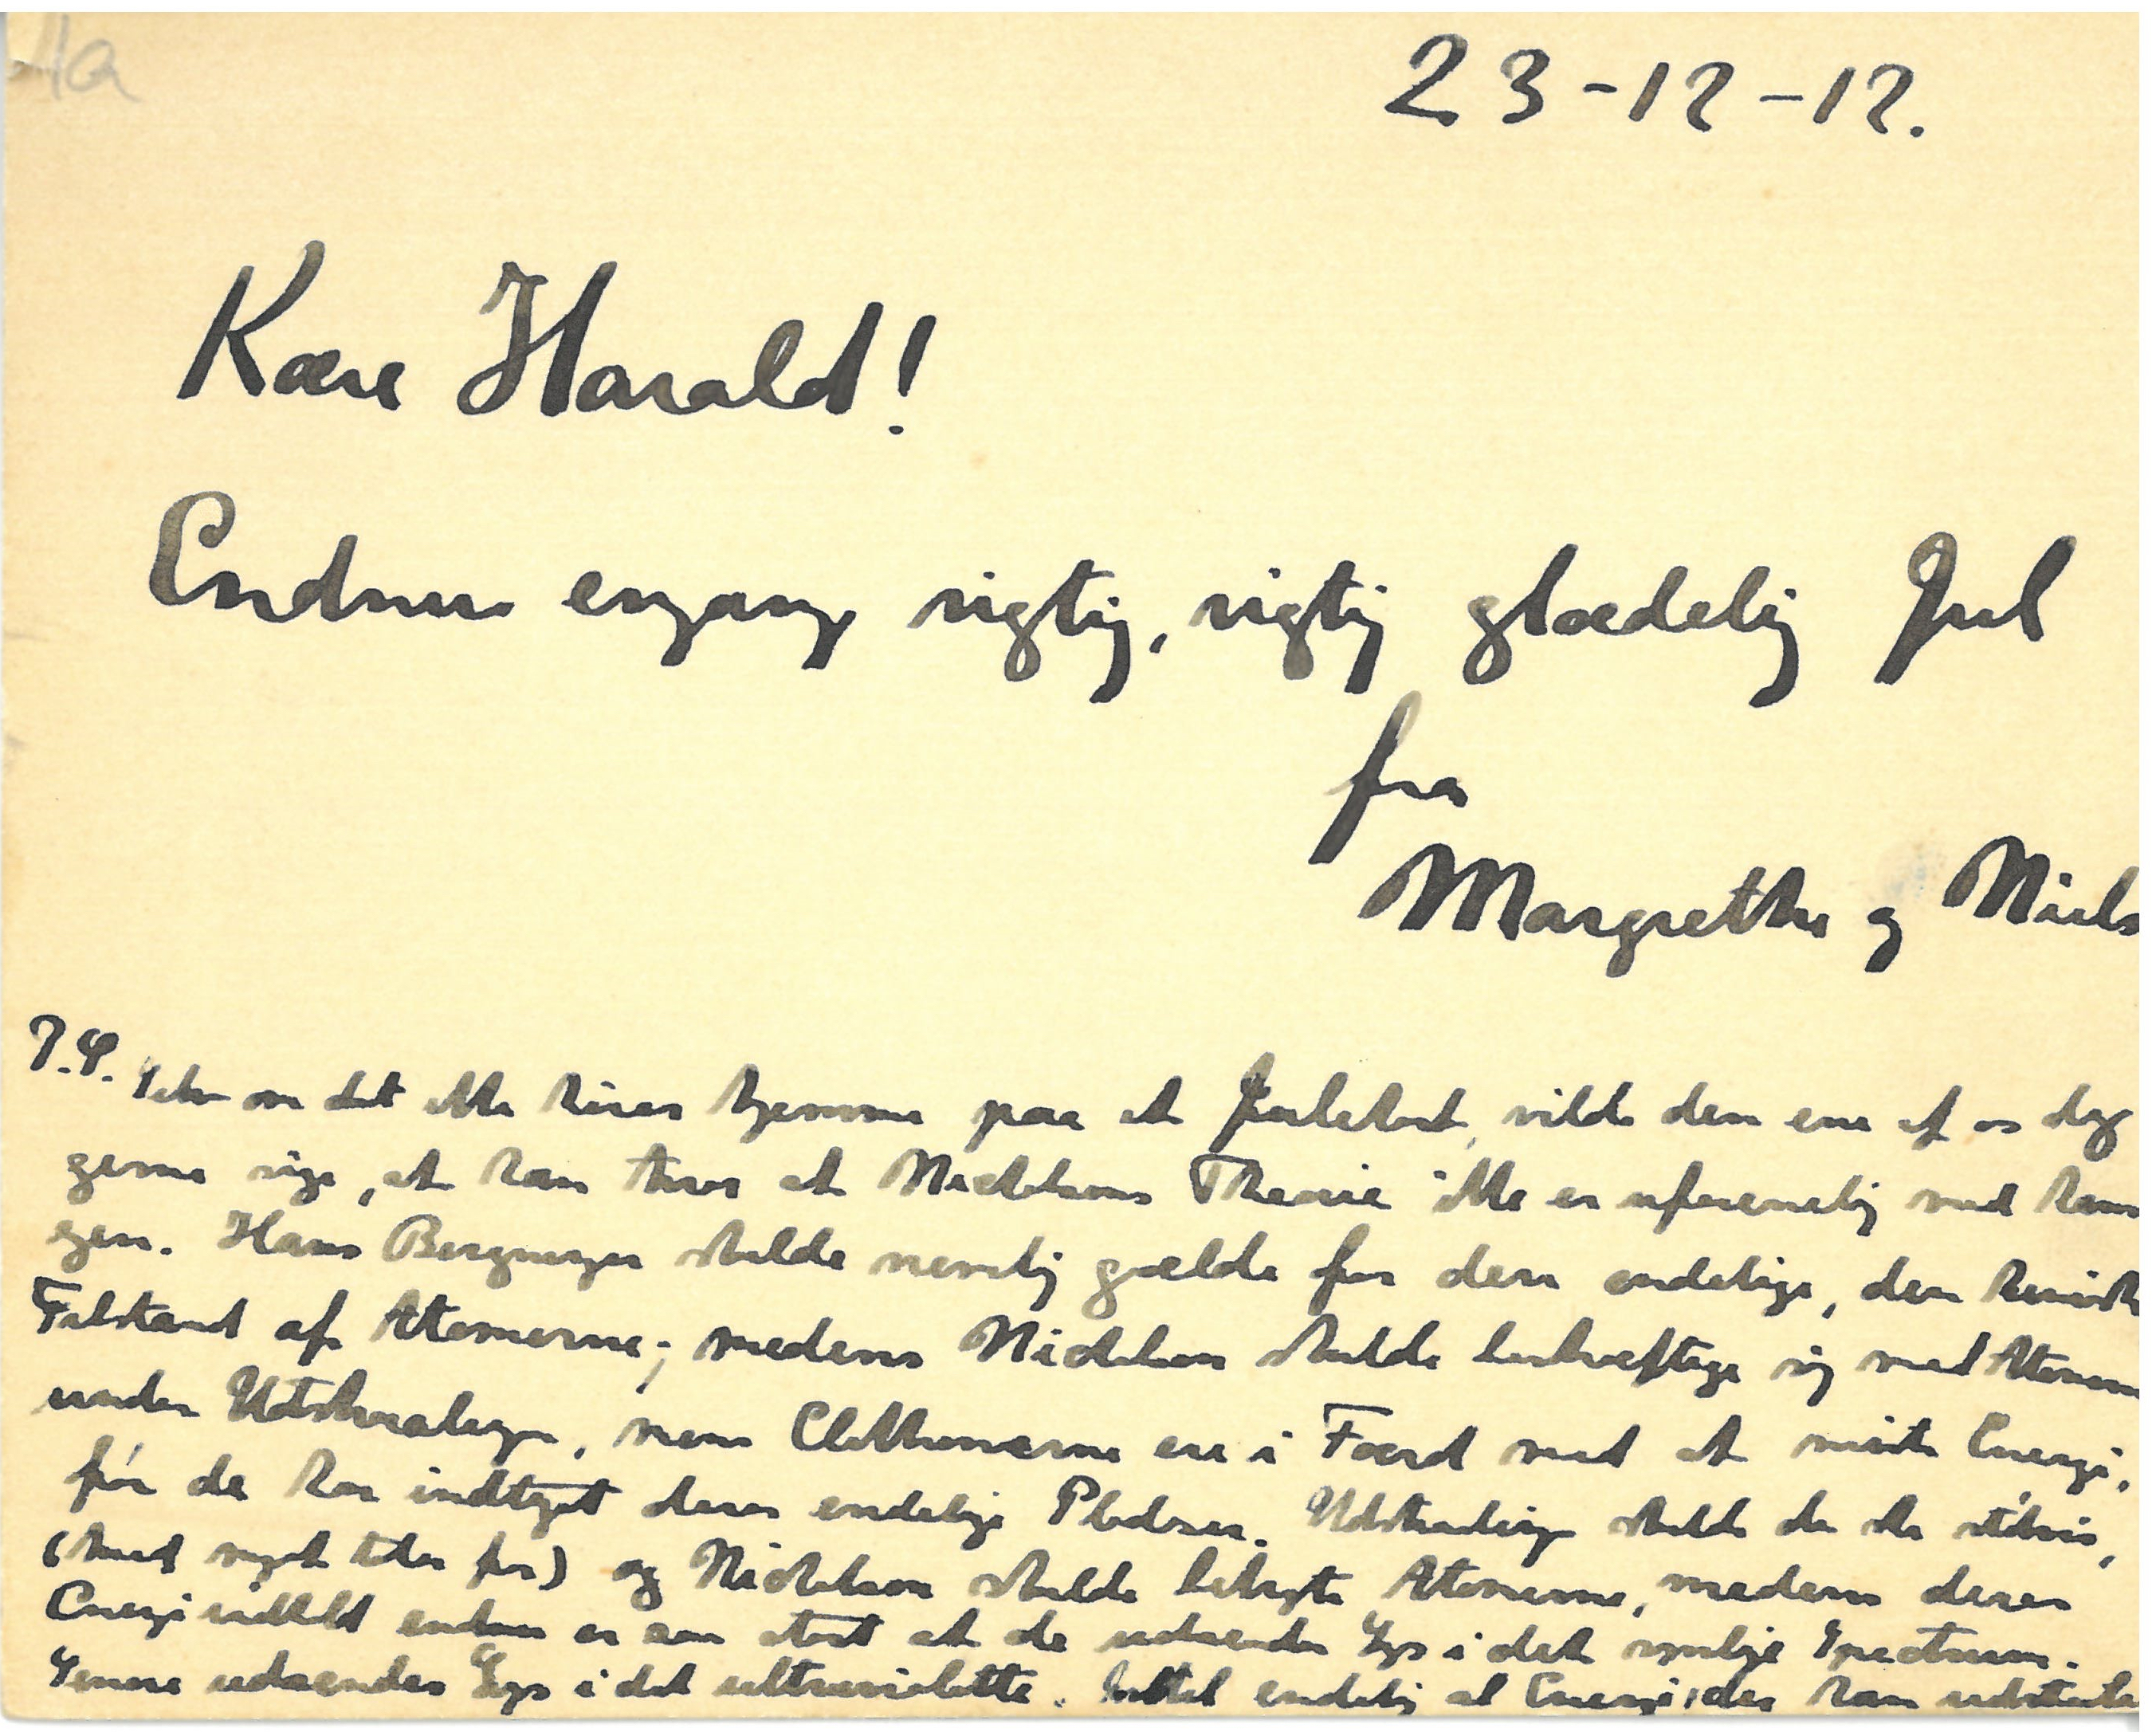 Ha
23-12-12.
Kære Harald!
Endnu engang rigtig, rigtig glædelig Jul
fra
Margrethe og Niels
P.S. Selv om det ikke hører hjemme paa et Julekort, vilde den ene af os dog
gerne sige, at han tror at Nicholsons Theorie ikke er uforenelig med hans
egen. Hans Beregninger skulde nemlig gælde for den endelige, den
Tilstand af Atomerne; medens Nicholson skulde beskæftige sig med Atomerne
under Udstraalingen, naar Elektronerne ere i Færd med at miste Energi,
før de har indtaget deres endelige Pladser. Udstraalingen skulde da ske stødvis,
(hvad meget taler for) og Nicholson skulde betragte Atomerne, medens deres
Energiindhold endnu er saa stort at de udsender Lys i det synlige Spectrum.
Senere udsendes Lys i det ultraviolette. Indtil endelig al Energi, der kan